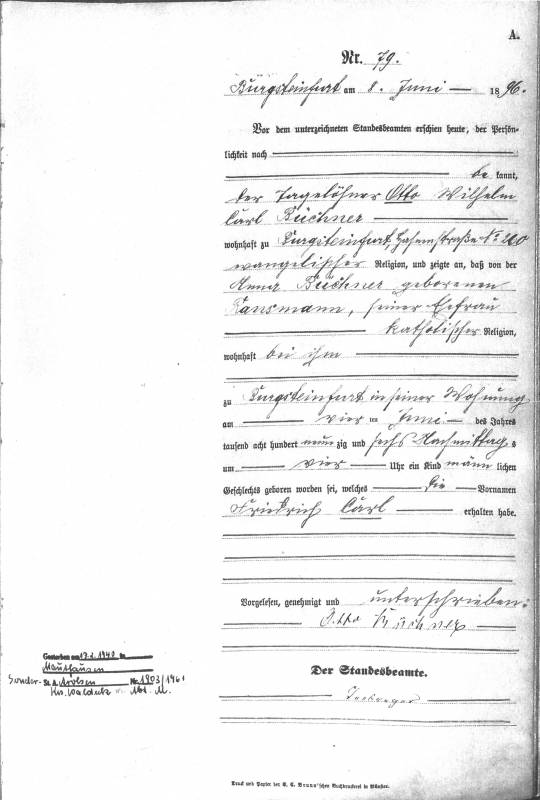 A.
Nr. 79.
Burgsteinfurt am 8. Juni 1896.
Vor dem unterzeichneten Standesbeamten erschien heute, der Persön-
lichkeit nach
be kannt,
der Tagelöhner Otto Wilhelm
Carl Büchner
wohnhaft zu Burgsteinfurt, No 210
evangelischer Religion, und zeigte an, daß von der
Anna Büchner geborenen
seiner Ehefrau
katholischer Religion,
wohnhaft bei ihm
zu Burgsteinfurt in seiner Wohnung
am vier ten Juni des Jahres
tausend acht hundert neun zig und sechs Nachmittag s
um vier Uhr ein Kind männ lichen
Geschlechts geboren worden sei, welches die Vornamen
Friedrich Carl erhalten habe.
Vorgelesen, genehmigt und unterschrieben:
Otto Büchner
Der Standesbeamte.
Gestorben am 17.2.1940 in
Mauthausen
Sonder- St. A. Arolsen Nr. 1903/1961
Krs. Waldeck Abt. M.
Druck und Papier der E. C. Brunn'schen Buchdruckerei in Münster.